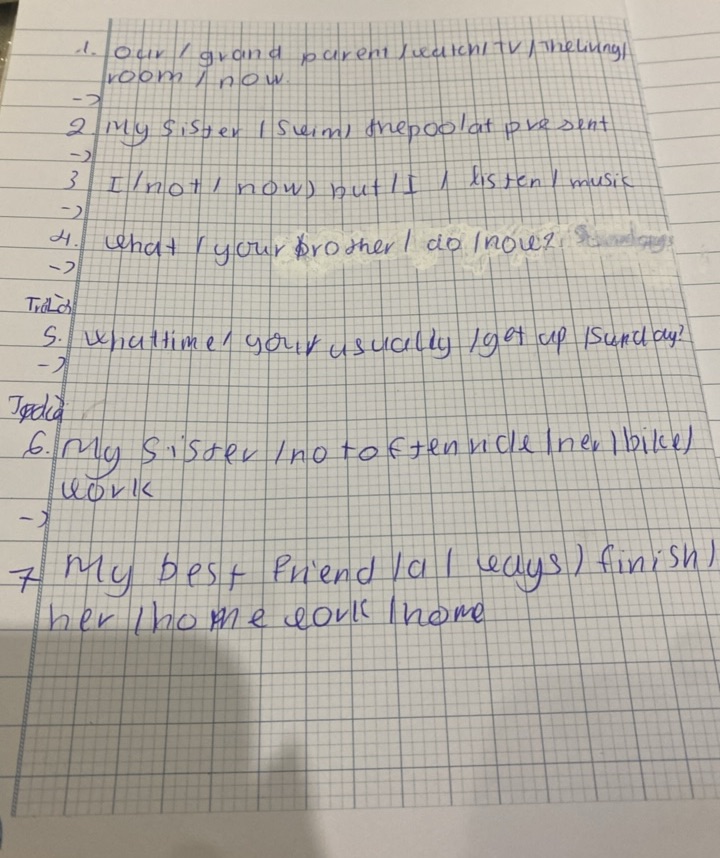 1. Our / grand parent / watch / TV / The living /
room / now.
->
2 My sister / swim / the pool at present
->
3 I / not / now) but / I / listen / music
->
4. what / your brother / do / now?
->
Trả Lời
5. what time / your usually / get up / Sunday?
->
6. My sister / not often ride / her / bike /
work
->
7 My best friend / always) finish /
her / home work / home